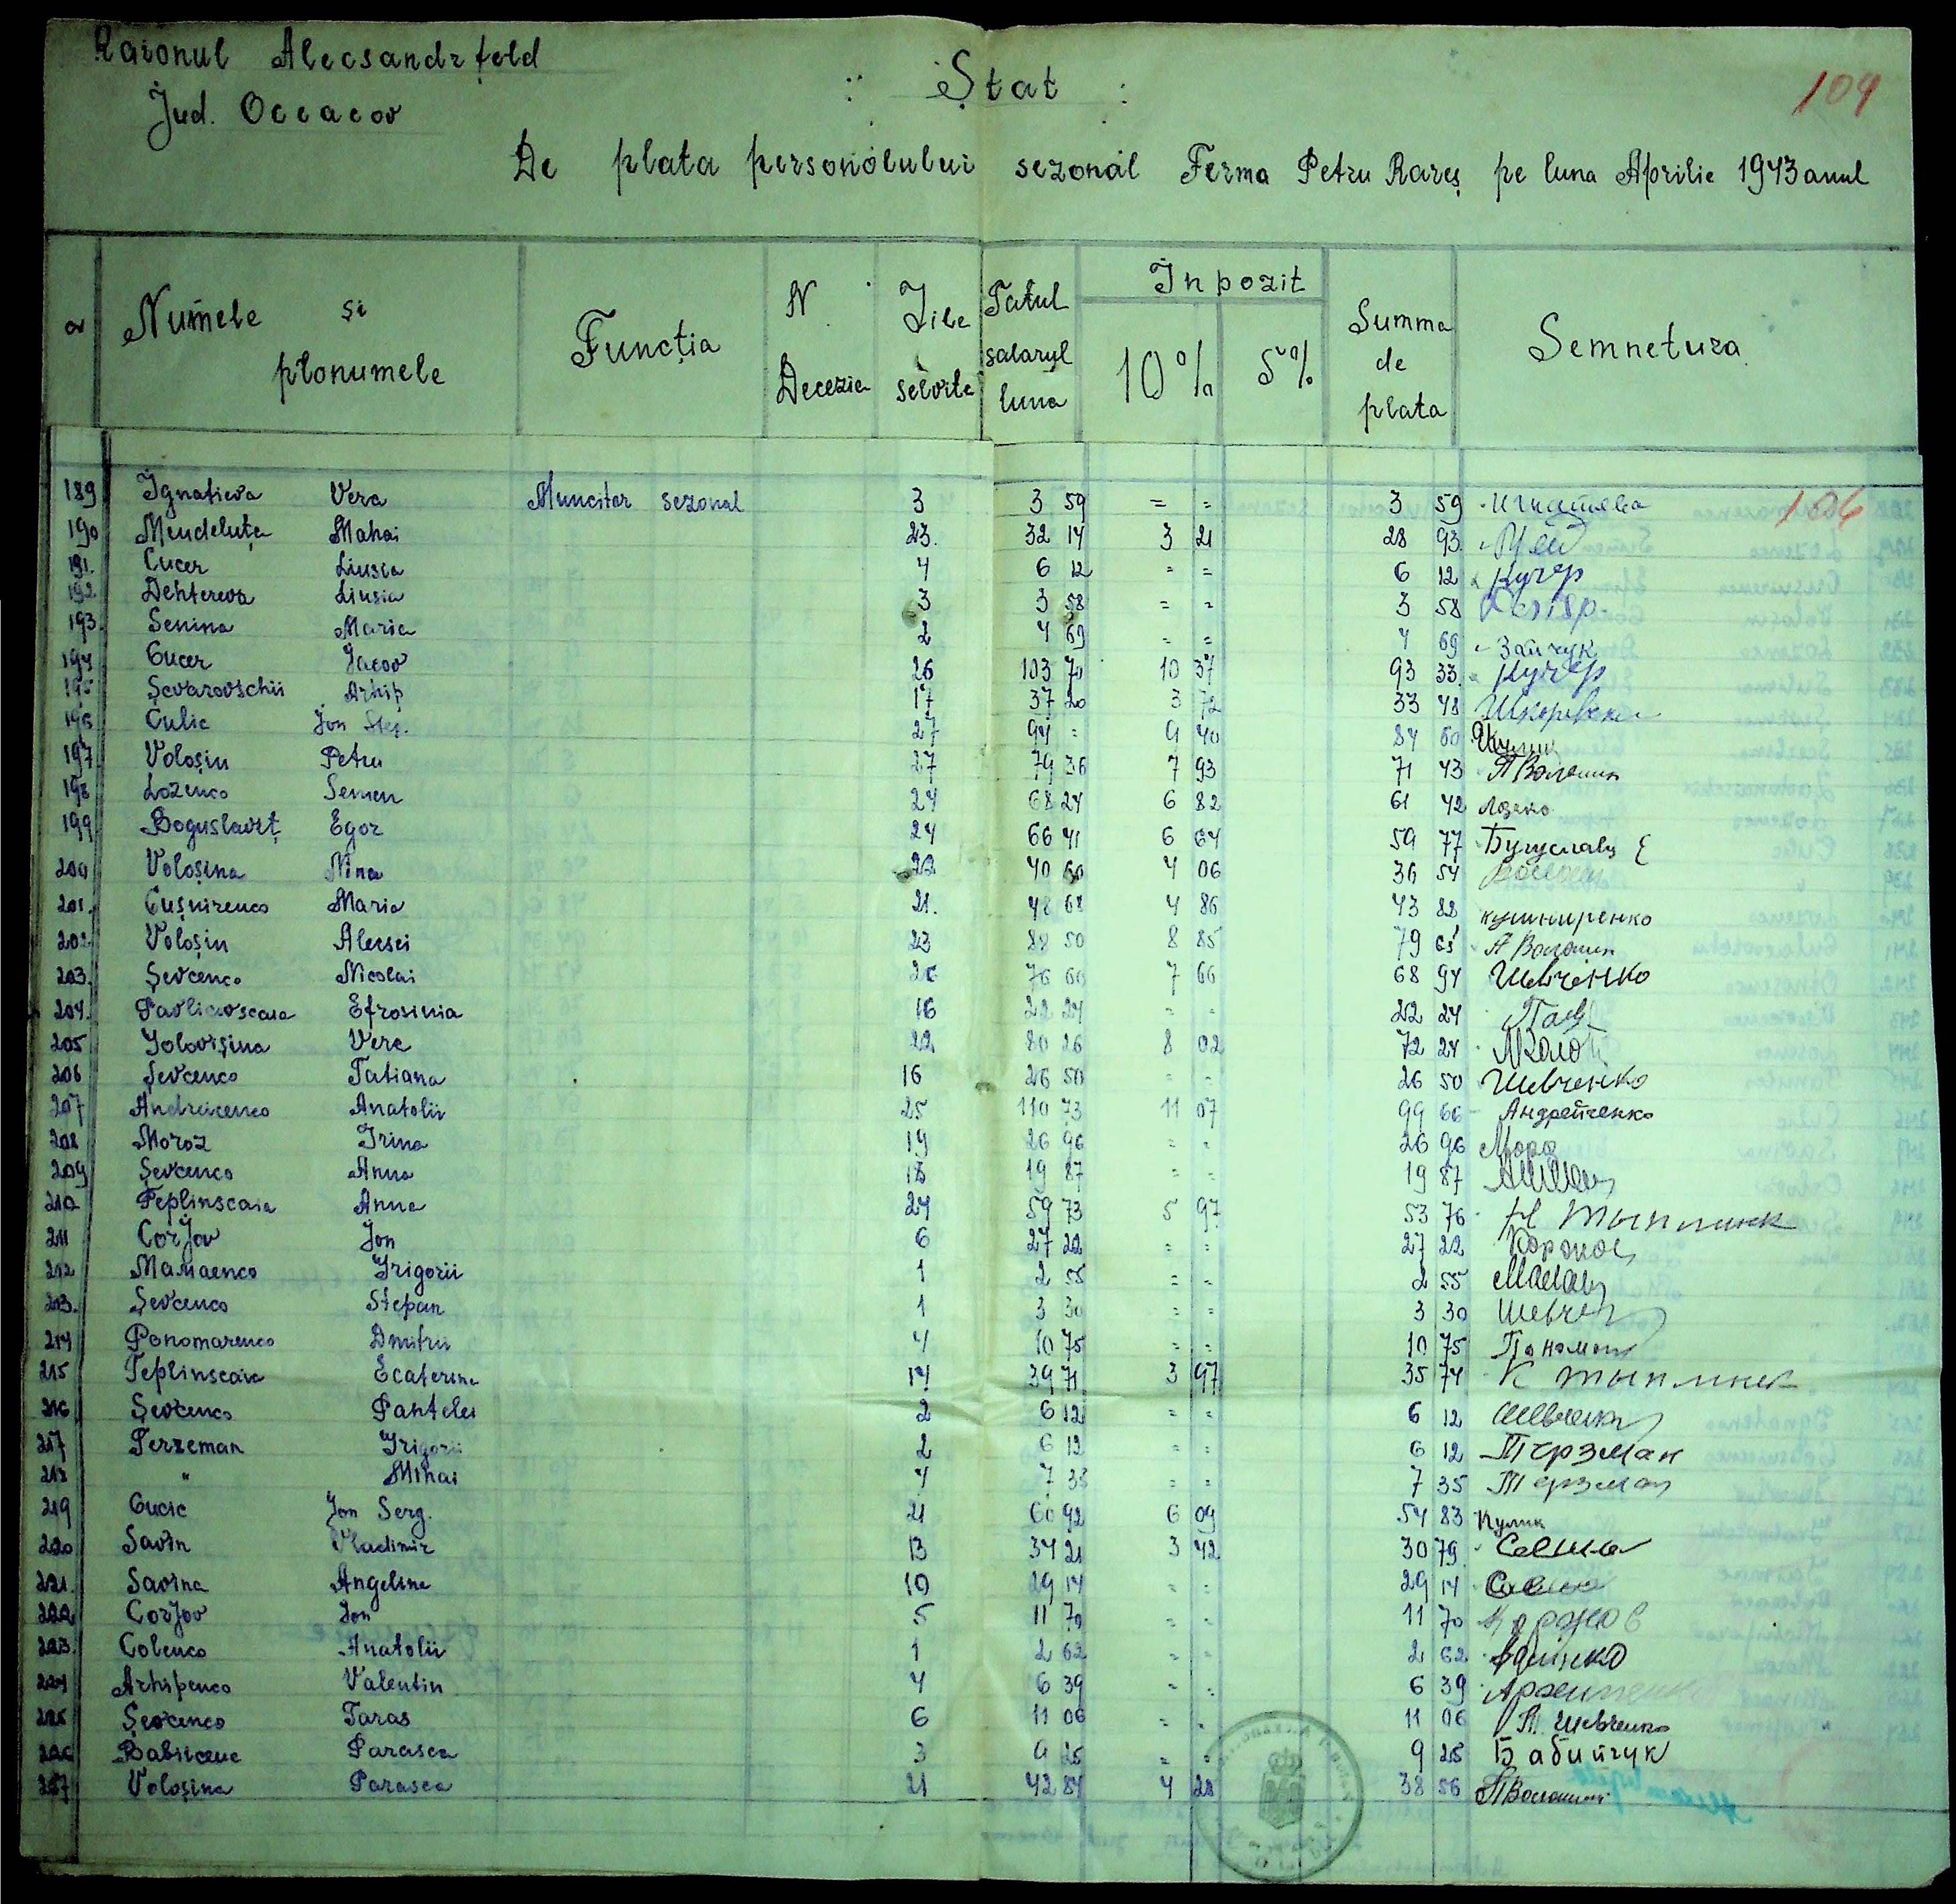 Raionul Alecsandrfeld
Jud. Occacov
Ștat
109
De plata personolului sezonal Ferma Petru Rareș pe luna Aprilie 1943 anul
Numele și plonumele
Funcția
N Decezie
Zile selvite
Tatul salaryl luna
Inpozit
10%
5%
Summa de plata
Semnetura
106
189 Ignatieva Vera Muncitor sezonal 3 3 59 = = 3 59 Игнатева
190 Mendeluța Mahai 23. 32 14 3 21 28 93
191. Cucer Liusia 4 6 12 = = 6 12 Кучер
192. Dehtereva Liusia 3 3 58 = = 3 58
193. Senina Maria 2 4 69 = = 4 69 Зайчук
194 Cucer Jacov 26 103 70 10 37 93 33 Кучер
195 Șcvarovschii Arhip 17 37 20 3 72 33 48
196 Culic Jon Ster. 27 94 = 9 40 84 60 Кулик
197 Voloșin Petru 27 79 36 7 93 71 43 П Волошин
198 Lozenco Semen 24 68 24 6 82 61 42 Лозко
199 Boguslavsț Egor 24 66 41 6 64 59 77 Бугуславц Е
200 Voloșina Nina 22 40 60 4 06 36 54
201. Cușnirenco Maria 21. 48 68 4 86 43 82 кушниренко
202. Voloșin Alecsei 23 88 50 8 85 79 65 А Волошин
203. Șevcenco Nicolai 26 76 60 7 66 68 94 Шевченко
204. Pavlicovscaia Efrosinia 16 22 24 = = 22 24 Пав
205 Jolovișina Vera 22 80 26 8 02 72 24
206 Șevcenco Tatiana 16 26 50 = = 26 50 Шевченко
207 Andreicenco Anatolii 25 110 73 11 07 99 66 Андрейченко
208 Moroz Irina 19 26 96 = = 26 96 Мороз
209 Șevcenco Anna 18 19 87 = = 19 87
210 Teplinscaia Anna 24 59 73 5 97 53 76 тыплинк
211 CorJov Jon 6 27 22 = = 27 22 Коржов
212 Mamaenco Grigorii 1 2 55 = = 2 55 Мамаен
213. Șevcenco Stepan 1 3 30 = = 3 30 Шевчен
214 Ponomarenco Dmitrii 4 10 75 = = 10 75 Пономор
215 Teplinscaia Ecaterina 14 39 71 3 97 35 74 К тыплинк
216 Șevcenco Pantelei 2 6 12 = = 6 12 Шевченк
217 Terzeman Grigorii 2 6 12 = = 6 12 Терзман
218 " Mihai 4 7 35 = = 7 35 Терзман
219 Cucic Jon Serg. 21 60 92 6 09 54 83 Кулик
220 Savin Vladimir 13 34 21 3 42 30 79 Савин
221. Savina Angelina 10 29 14 = = 29 14 Савина
222 CorJov Jon 5 11 70 = = 11 70 Коржов
223. Colenco Anatolii 1 2 62 = = 2 62
224 Arhipenco Valentin 4 6 39 = = 6 39 Архипенко
225 Șevcenco Taras 6 11 06 = = 11 06 Т. Шевченко
226 Babiicenc Parasca 3 9 25 = = 9 25 Бабийчук
227 Voloșina Parasca 21 42 84 4 28 38 56 П Волошин